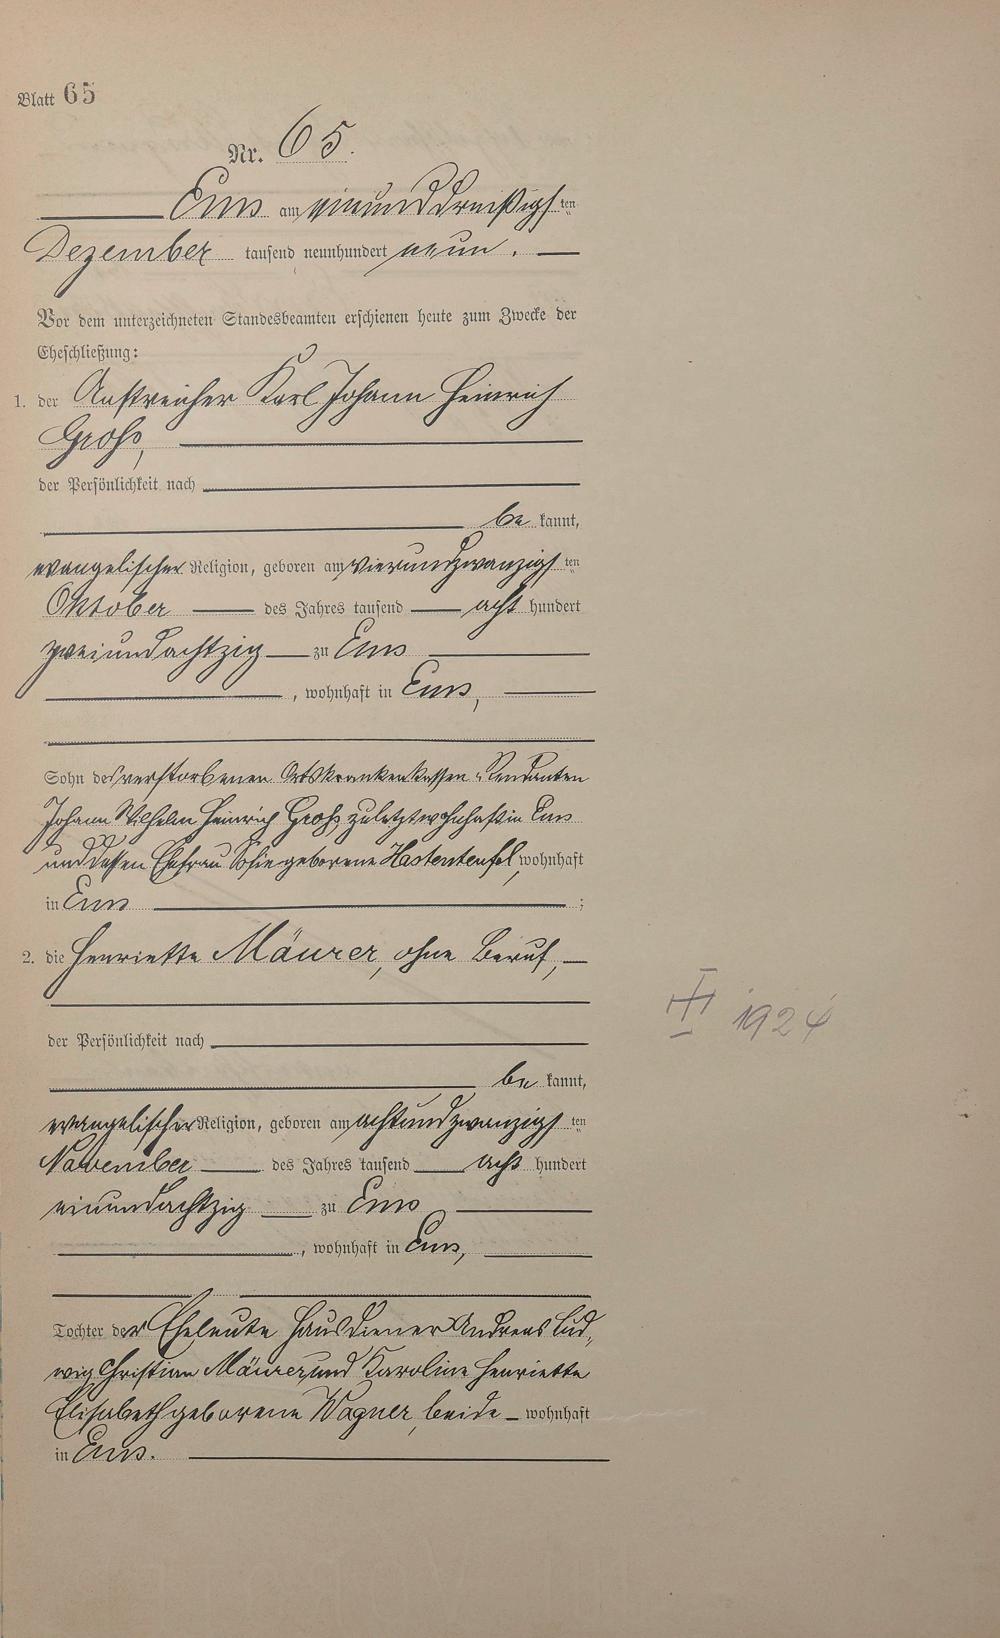 Blatt 65
Nr. 65.
Ems am einunddreißigsten
Dezember tausend neunhundert neun.
Vor dem unterzeichneten Standesbeamten erschienen heute zum Zwecke der
Eheschließung:
1. der Anstreicher Karl Johann Heinrich
Groß,
der Persönlichkeit nach
be kannt,
evangelischer Religion, geboren am vierundzwanzigsten
Oktober des Jahres tausend acht hundert
zweiundachtzig zu Ems
, wohnhaft in Ems,
Sohn des verstorbenen Ortskrankenkassen-Rendanten
Johann Wilhelm Heinrich Groß, zuletzt wohnhaft in Ems
und dessen Ehefrau Sofie geborene Hastenteufel, wohnhaft
in Ems ;
2. die Henriette Mäurer, ohne Beruf,
der Persönlichkeit nach
be kannt,
evangelischer Religion, geboren am achtundzwanzigsten
November des Jahres tausend acht hundert
einundachtzig zu Ems
, wohnhaft in Ems,
Tochter der Eheleute Hausdiener Andreas Lud-
wig Christian Mäurer und Karoline Henriette
Elisabeth geborene Wagner, beide wohnhaft
in Ems.
1924